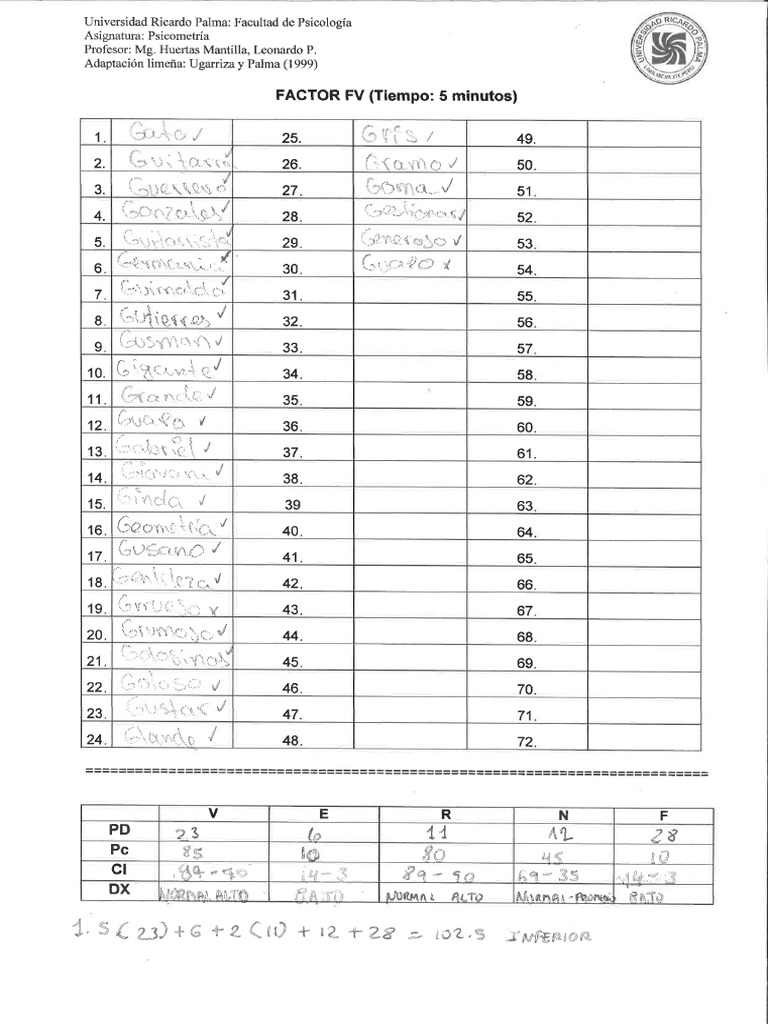 Universidad Ricardo Palma: Facultad de Psicología
Asignatura: Psicometría
Profesor: Mg. Huertas Mantilla, Leonardo P.
Adaptación limeña: Ugarriza y Palma (1999)
UNIVERSIDAD RICARDO PALMA
FACTOR FV (Tiempo: 5 minutos)
1. Gato ✓ 25. Gris ✓ 49.
2. Guitarra ✓ 26. Gramo ✓ 50.
3. Guerrero ✓ 27. Goma ✓ 51.
4. Gonzales ✓ 28. Gestionar ✓ 52.
5. Guitarrista ✓ 29. Generoso ✓ 53.
6. Germania 30. Guapo x 54.
7. Guirnalda ✓ 31. 55.
8. Gutierres ✓ 32. 56.
9. Gusman ✓ 33. 57.
10. Gigante ✓ 34. 58.
11. Grande ✓ 35. 59.
12. Guapa ✓ 36. 60.
13. Gabriel ✓ 37. 61.
14. Giovani ✓ 38. 62.
15. Ginda ✓ 39 63.
16. Geometria ✓ 40. 64.
17. Gusano ✓ 41. 65.
18. Gentileza ✓ 42. 66.
19. Grrueso x 43. 67.
20. Grumoso ✓ 44. 68.
21. Golosinas ✓ 45. 69.
22. Goloso ✓ 46. 70.
23. Gustar ✓ 47. 71.
24. Glande ✓ 48. 72.
V E R N F
PD 23 6 11 12 28
Pc 85 10 80 45 10
CI 89-90 14-3 89-90 69-35 14-3
DX NORMAL ALTO BAJO NORMAL ALTO NORMAL-PROMEDIO BAJO
1.5(23)+6+2(11)+12+28 = 102.5 INFERIOR